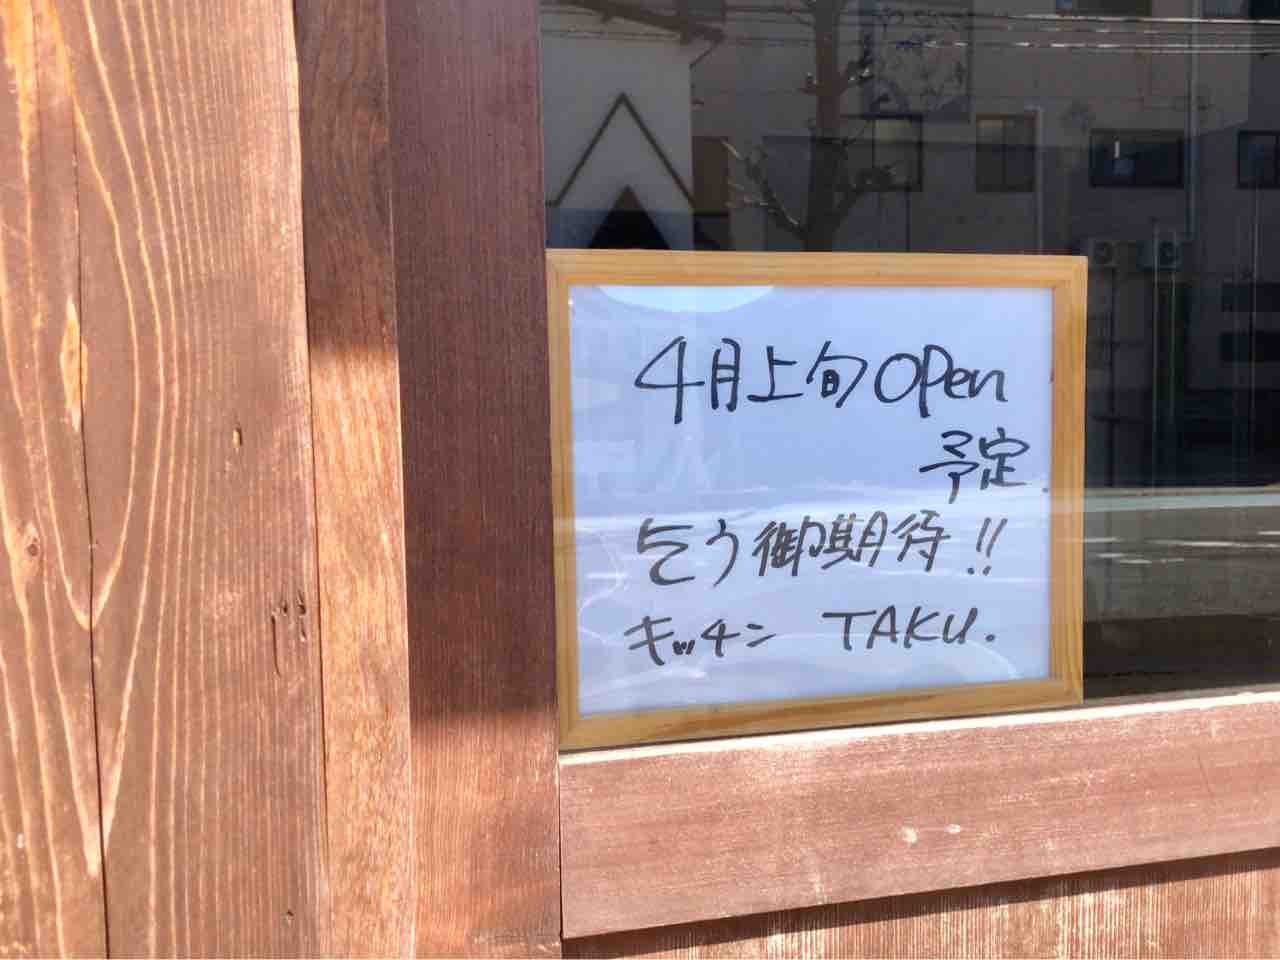 4月上旬Open
予定.
乞う御期待!!
キッチン TAKU.